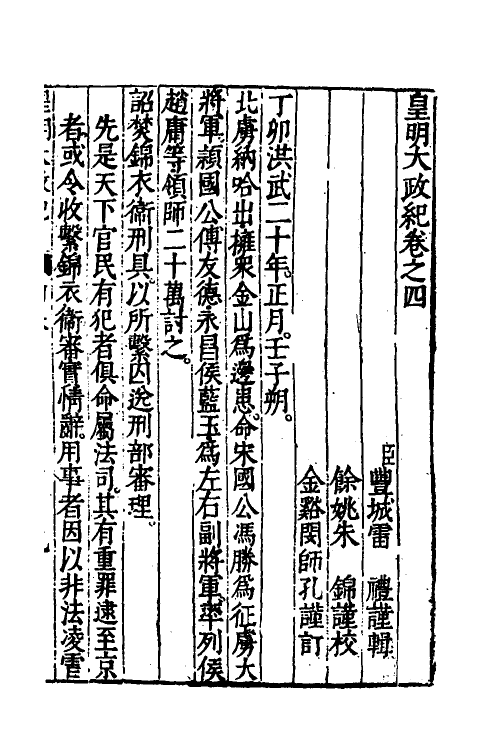 皇明大政紀卷之四
臣豐城雷　禮謹輯
餘姚朱　錦謹校
金谿閔師孔謹訂
丁卯洪武二十年。正月。壬子朔。
北虜納哈出擁衆金山爲邊患。命宋國公馮勝爲征虜大
將軍穎國公傅友德永昌侯藍玉爲左右副將軍率列侯
趙庸等領師二十萬討之。
詔焚錦衣衛刑具。以所繫囚送刑部審理。
先是天下官民有犯者俱命屬法司。其有重罪逮至京
者或令收繫錦衣衛審實情辭。用事者因以非法凌虐